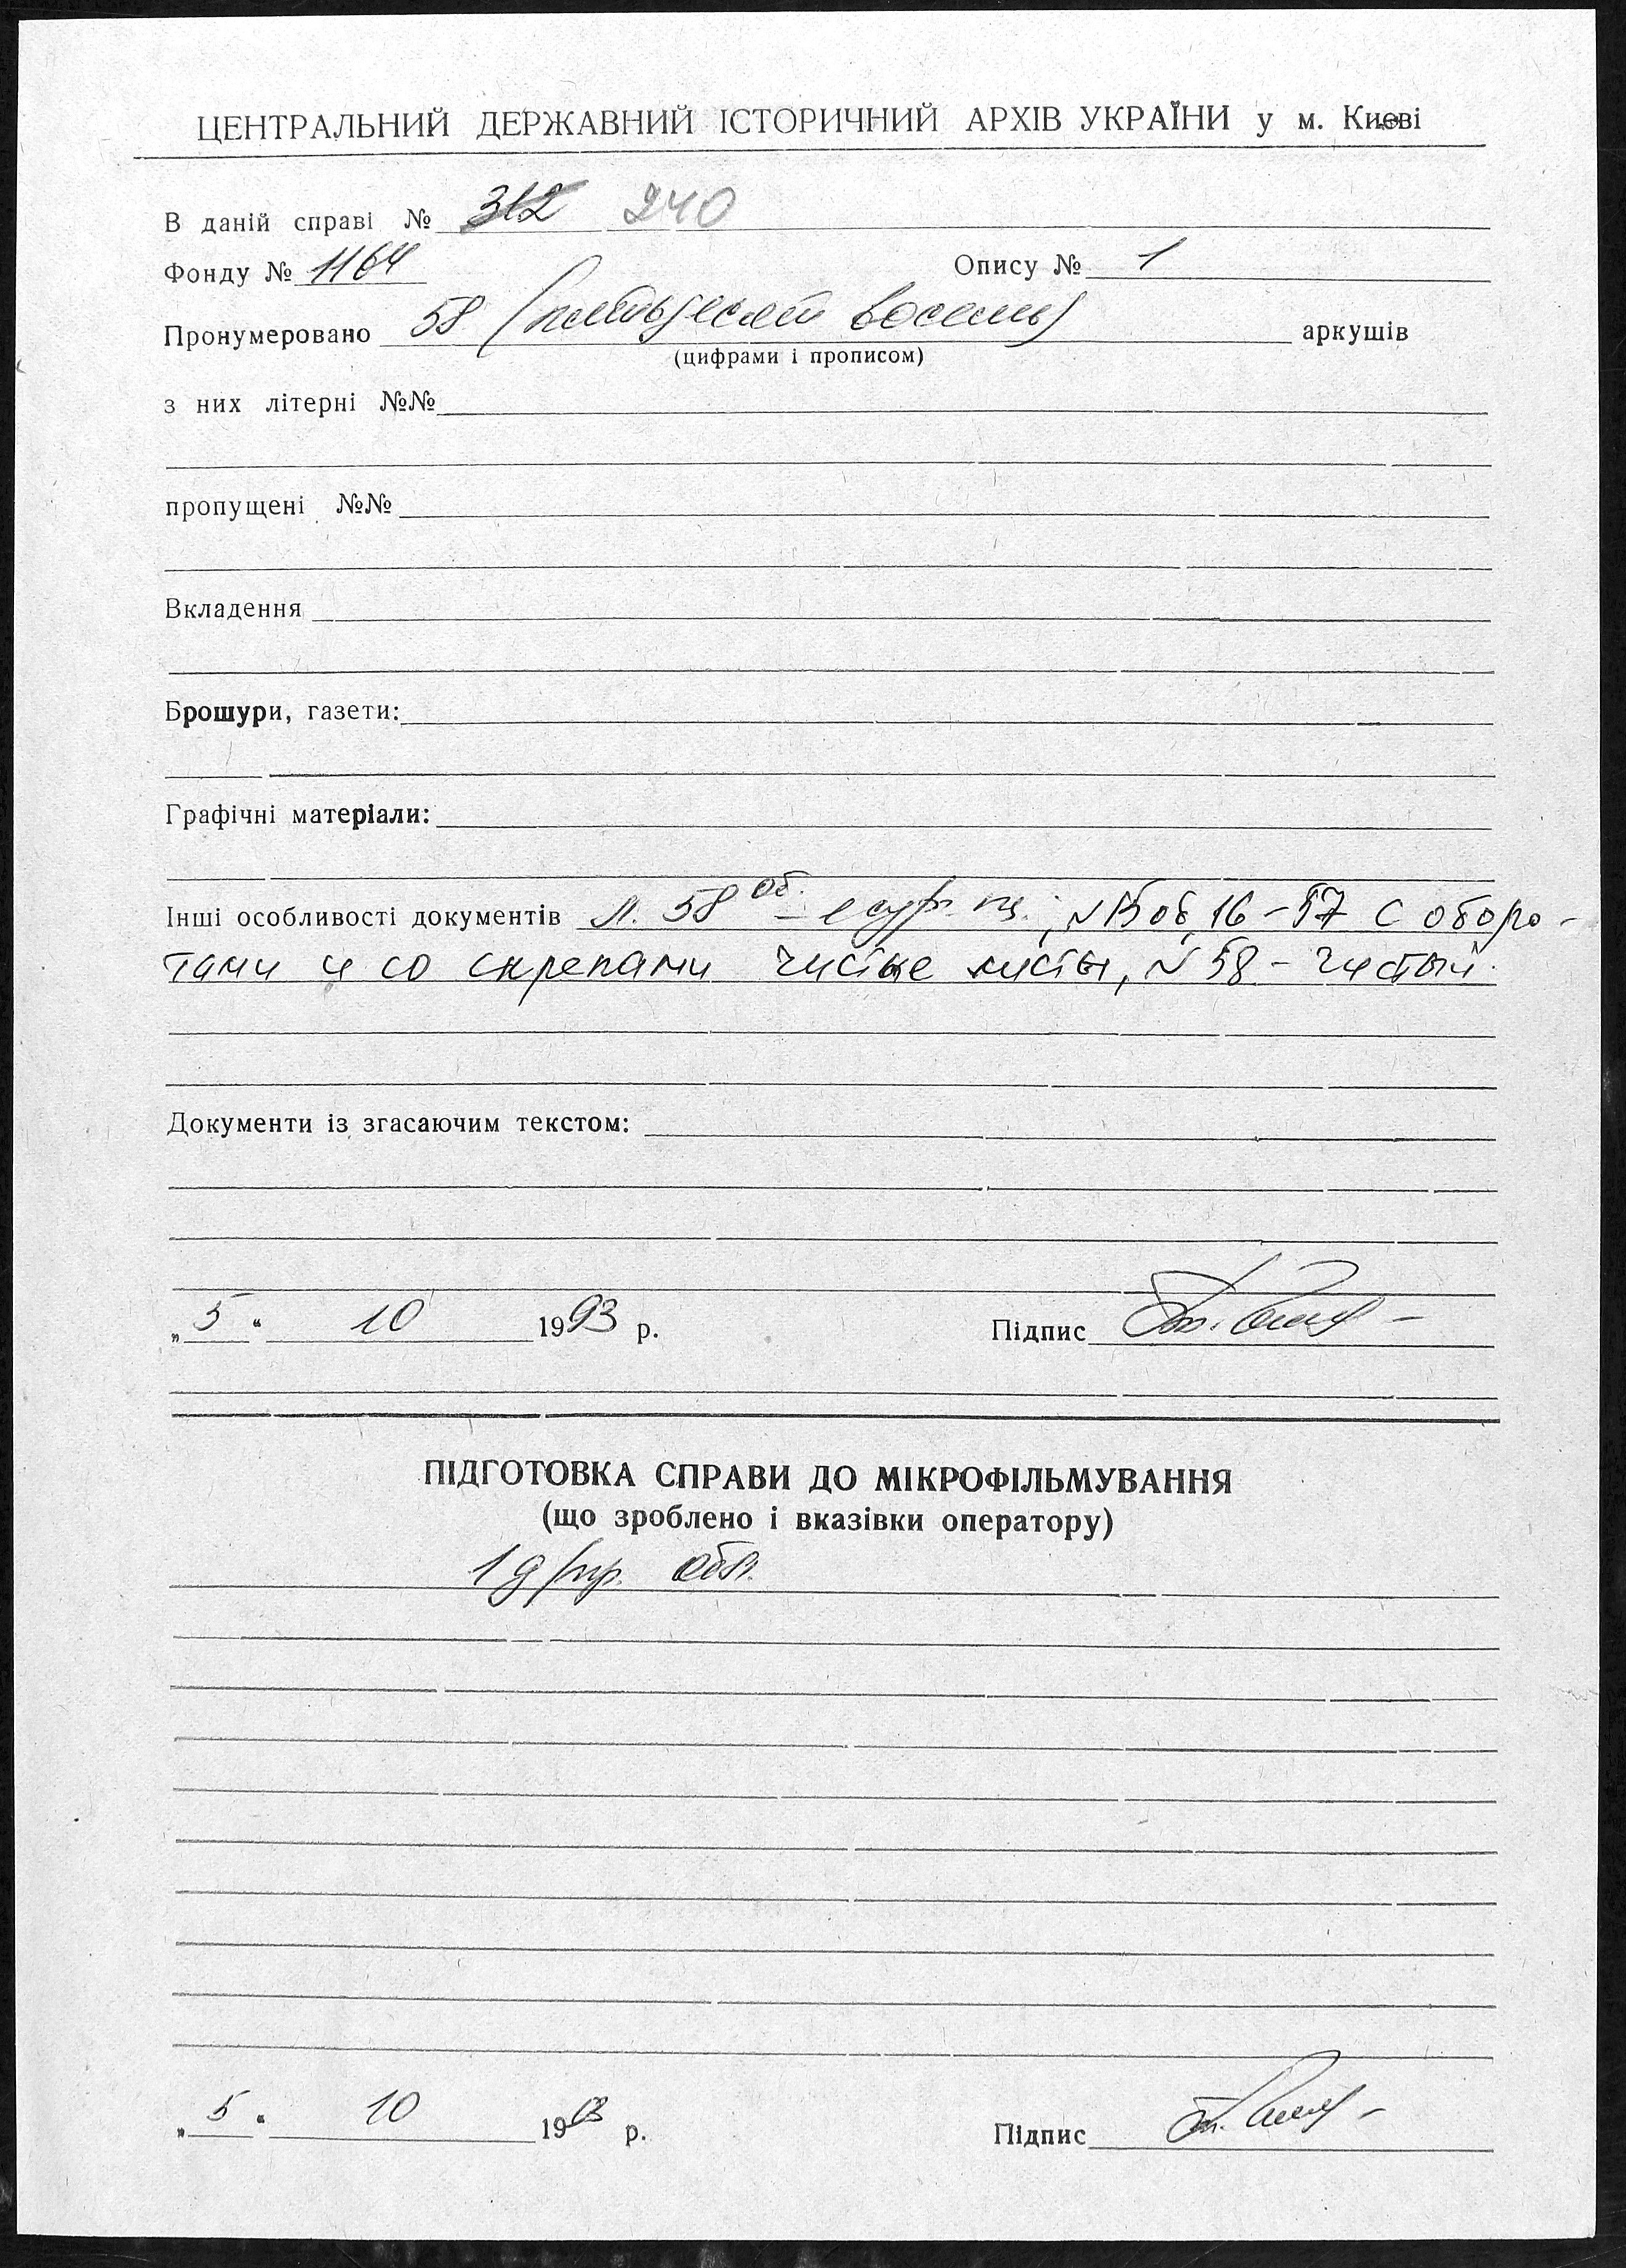 ЦЕНТРАЛЬНИЙ ДЕРЖАВНИЙ ІСТОРИЧНИЙ АРХІВ УКРАЇНИ у м. Києві
В даній справі № 312 240
Фонду № 1164 Опису № 1
Пронумеровано 58 (пятьдесят восемь) аркушів
(цифрами і прописом)
з них літерні №№
пропущені №№
Вкладення
Брошури, газети:
Графічні матеріали:
Інші особливості документів Л. 58 об. – ; N 15 об, 16 – 57 с оборо-
тами и со скрепами чистые листы, N 58 – чистый.
Документи із згасаючим текстом:
„5“ 10 1993 р. Підпис
ПІДГОТОВКА СПРАВИ ДО МІКРОФІЛЬМУВАННЯ
(що зроблено і вказівки оператору)
1
„5“ 10 1993 р. Підпис